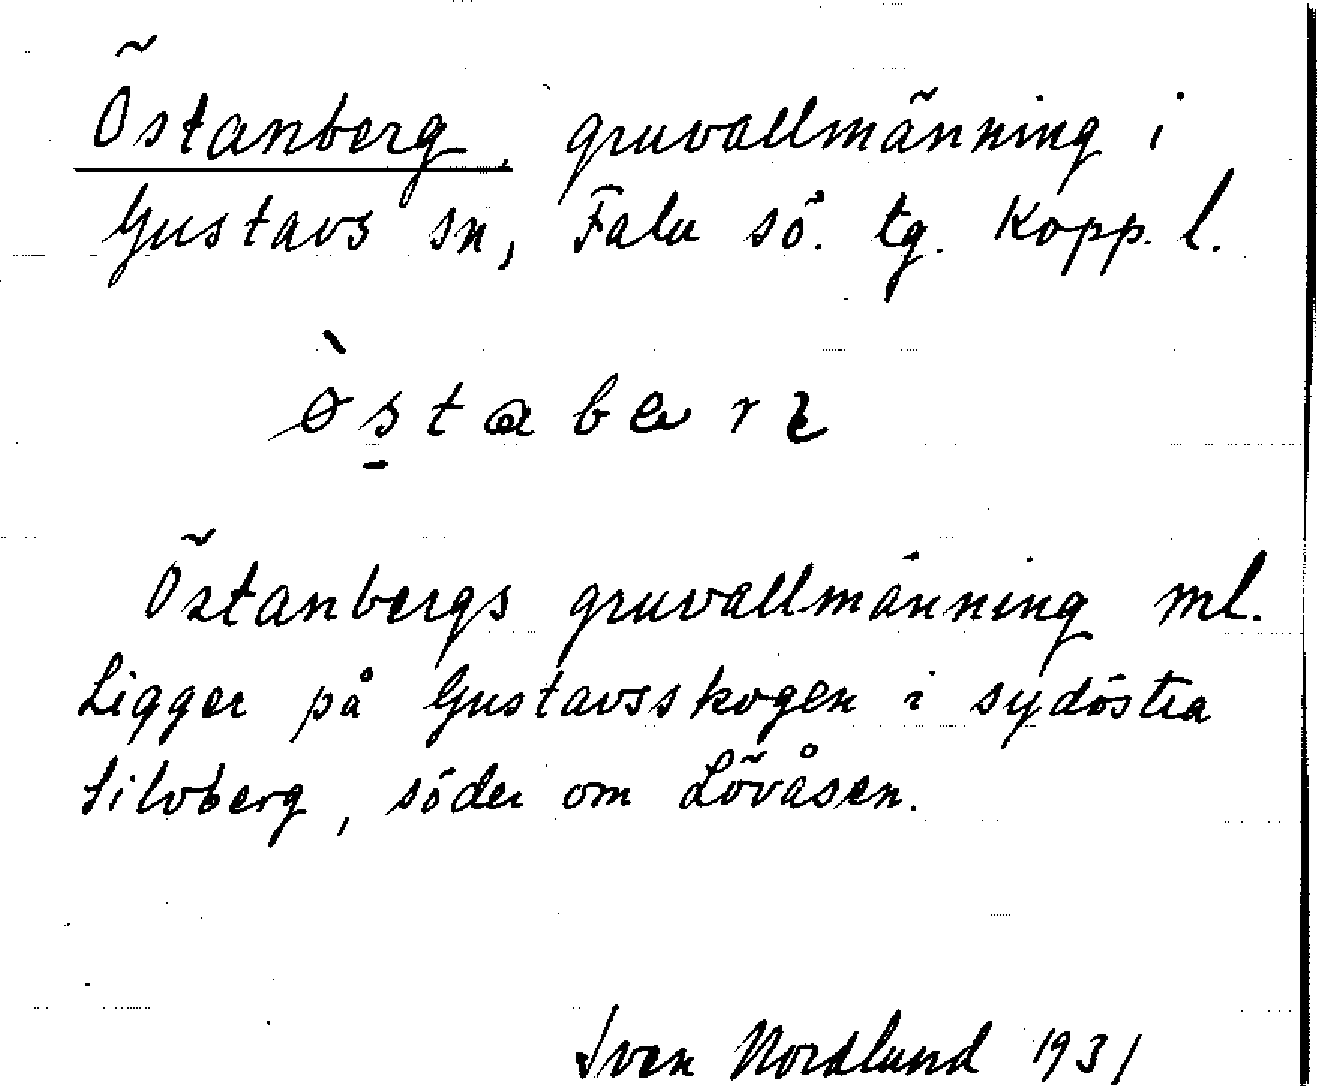 Östanberg, gruvallmänning i
Gustavs sn, Falu sö. tg. Kopp. l.
Östanbergs gruvallmänning ml.
Ligger på Gustavsskogen i sydöstra
Silvberg, söder om Lövåsen.
Sven Nordlund 1931